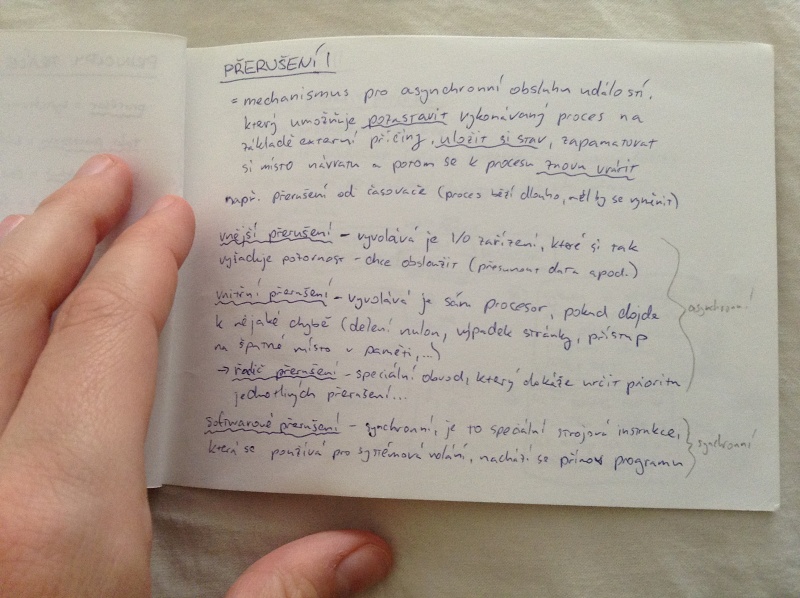 PŘERUŠENÍ!
= mechanismus pro asynchronní obsluhu událostí,
který umožňuje pozastavit vykonávaný proces na
základě externí příčiny, uložit si stav, zapamatovat
si místo návratu a potom se k procesu znovu vrátit
např. přerušení od časovače (proces běží dlouho, měl by se vyměnit)
vnější přerušení - vyvolává je I/O zařízení, které si tak
vyžaduje pozornost - chce obsloužit (přesunout data apod.)
vnitřní přerušení - vyvolává je sám procesor, pokud dojde
k nějaké chybě (dělení nulou, výpadek stránky, přístup
na špatné místo v paměti,...)
asynchronní
→ řadič přerušení - speciální obvod, který dokáže určit prioritu
jednotlivých přerušení...
softwarové přerušení - synchronní, je to speciální strojová instrukce,
která se používá pro systémová volání, nachází se přímo v programu
synchronní